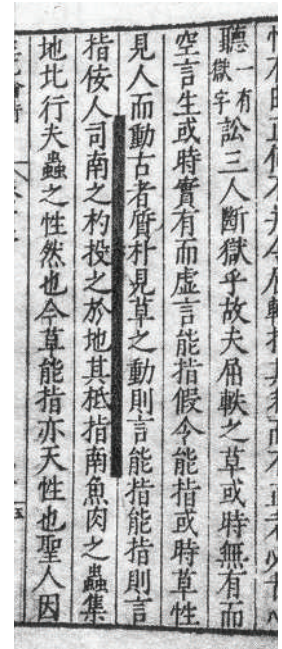 聽一有獄字訟三人斷獄乎故夫屈軼之草或時無有而
空言生或時實有而虛言能指假令能指或時草性
見人而動古者質朴見草之動則言能指能指則言
指佞人司南之杓投之於地其柢指南魚肉之蟲集
地北行夫蟲之性然也今草能指亦天性也聖人因